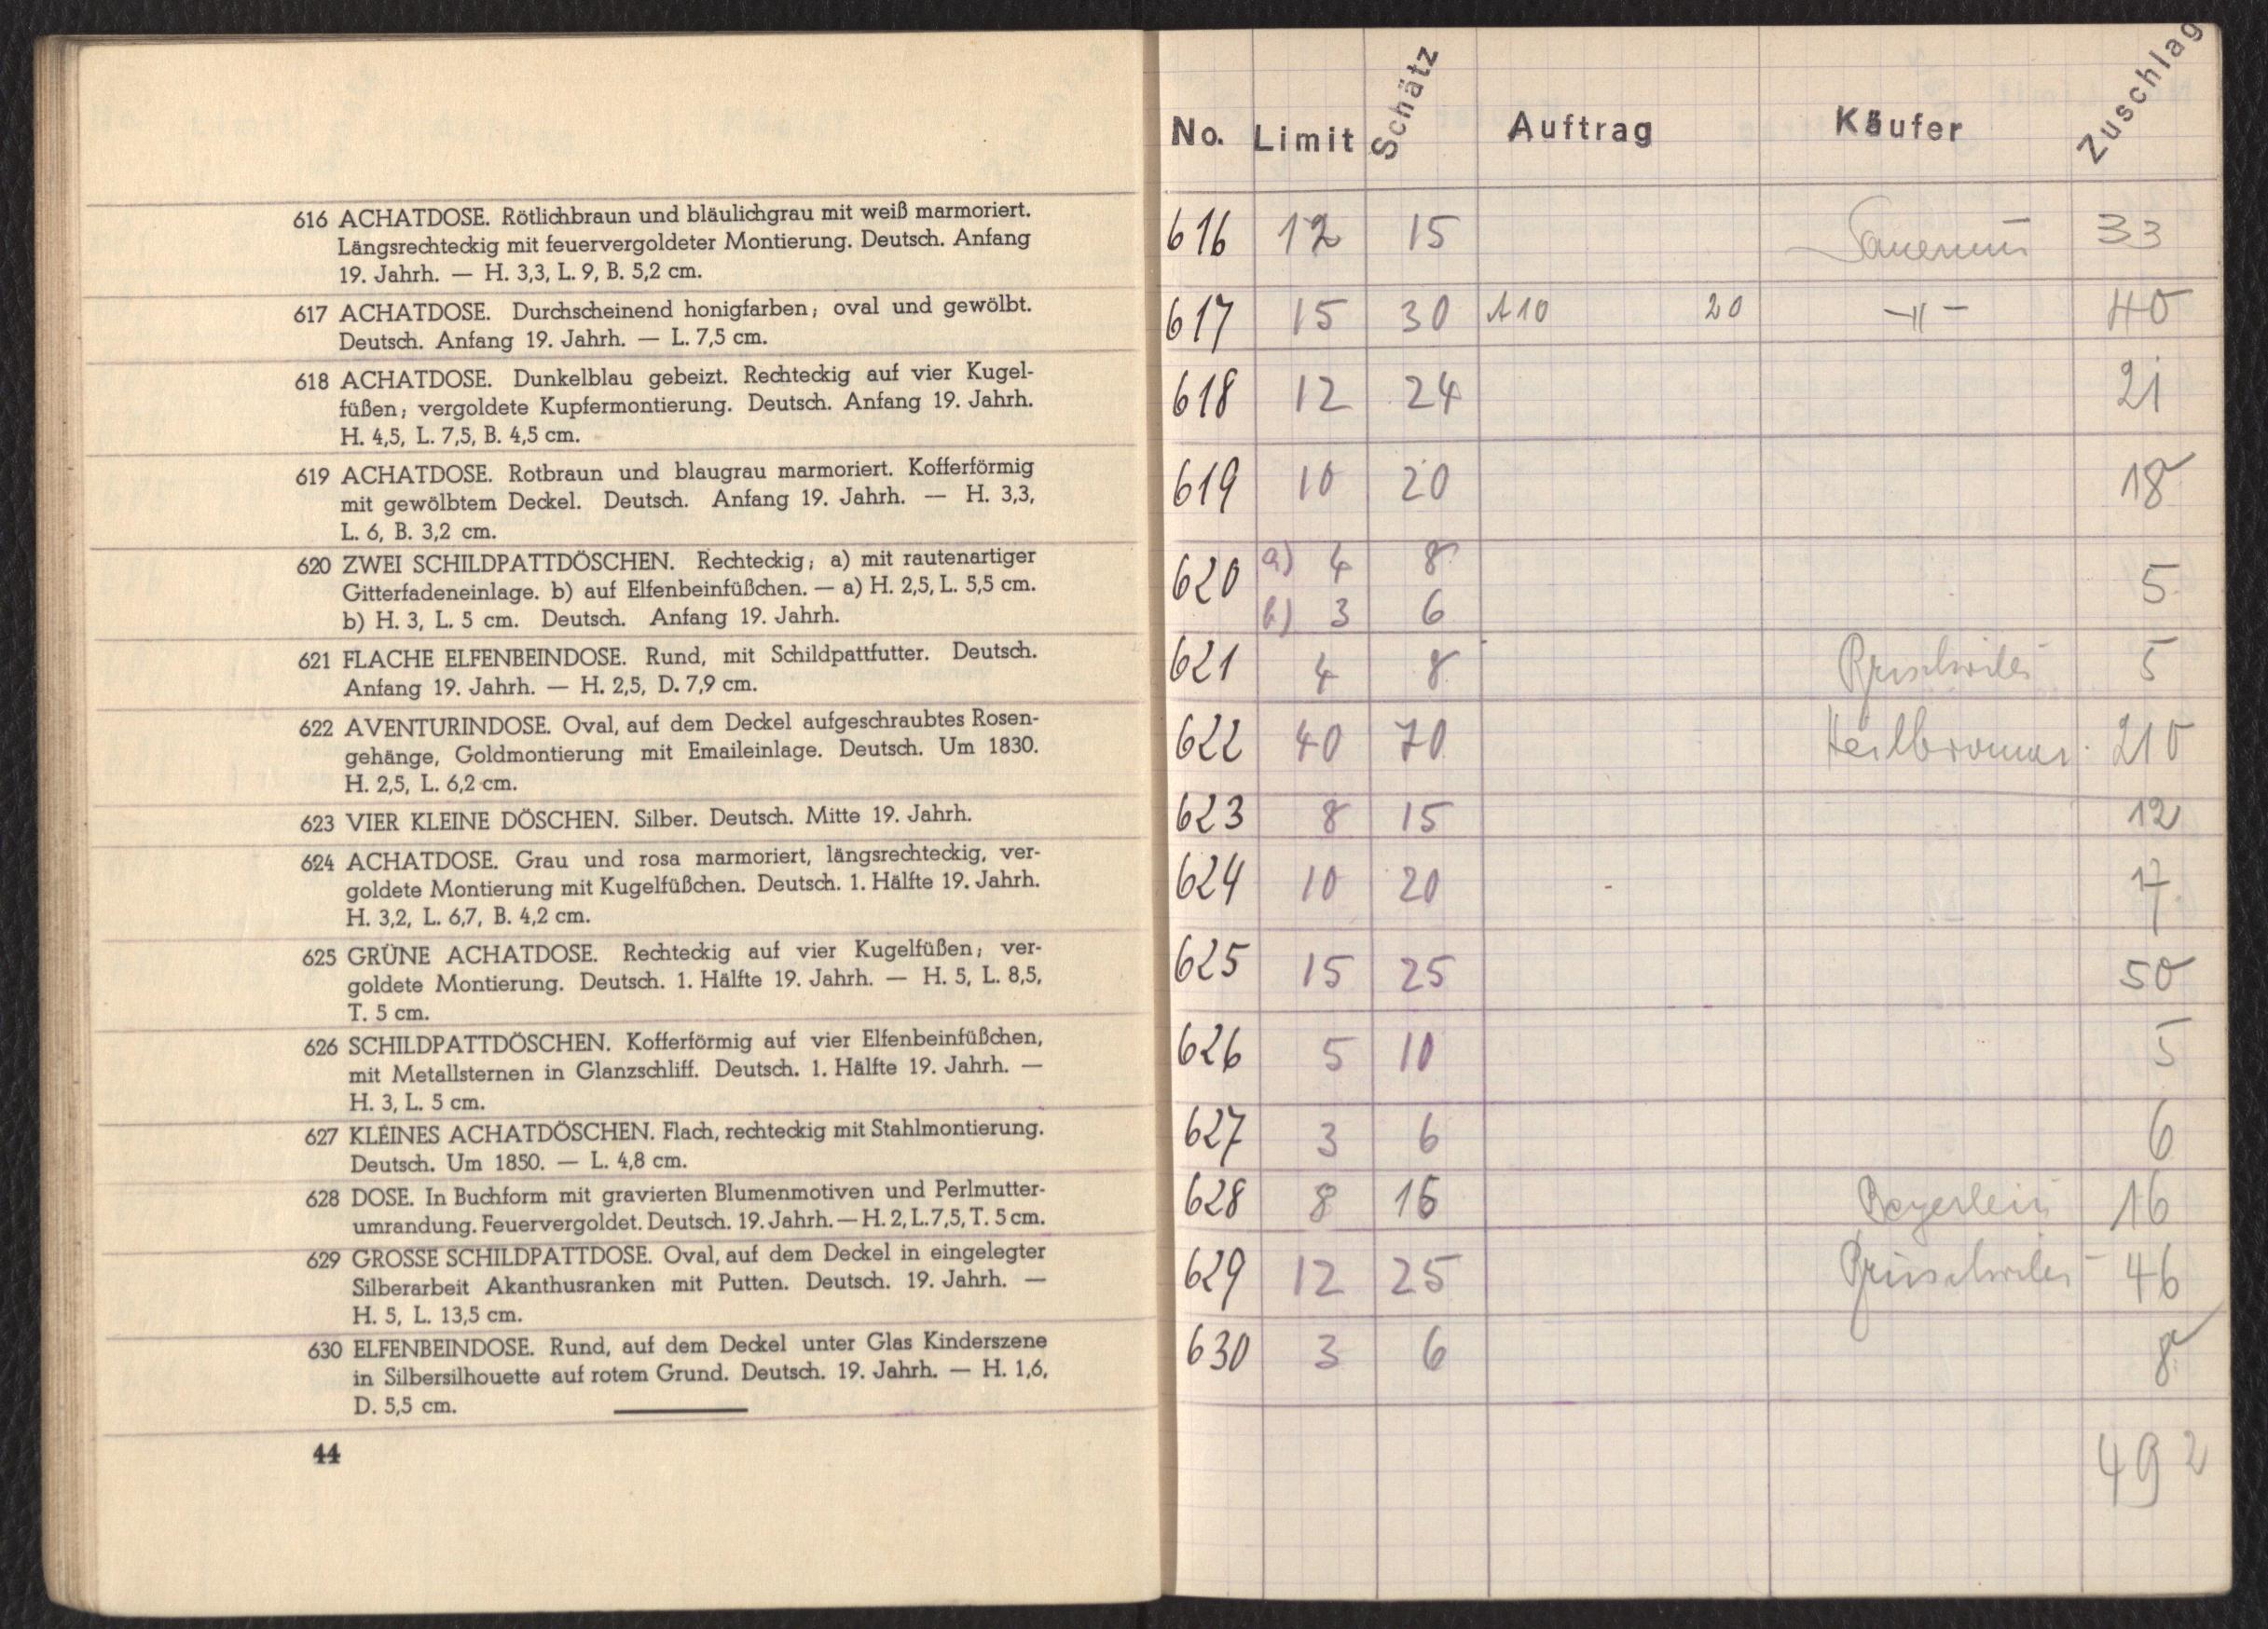 616 ACHATDOSE. Rötlichbraun und bläulichgrau mit weiß marmoriert.
Längsrechteckig mit feuervergoldeter Montierung. Deutsch. Anfang
19. Jahrh. — H. 3,3, L. 9, B. 5,2 cm.
617 ACHATDOSE. Durchscheinend honigfarben; oval und gewölbt.
Deutsch. Anfang 19. Jahrh. — L. 7,5 cm.
618 ACHATDOSE. Dunkelblau gebeizt. Rechteckig auf vier Kugel-
füßen; vergoldete Kupfermontierung. Deutsch. Anfang 19. Jahrh.
H. 4,5, L. 7,5, B. 4,5 cm.
619 ACHATDOSE. Rotbraun und blaugrau marmoriert. Kofferförmig
mit gewölbtem Deckel. Deutsch. Anfang 19. Jahrh. — H. 3,3,
L. 6, B. 3,2 cm.
620 ZWEI SCHILDPATTDÖSCHEN. Rechteckig; a) mit rautenartiger
Gitterfadeneinlage. b) auf Elfenbeinfüßchen. — a) H. 2,5, L. 5,5 cm.
b) H. 3, L. 5 cm. Deutsch. Anfang 19. Jahrh.
621 FLACHE ELFENBEINDOSE. Rund, mit Schildpattfutter. Deutsch.
Anfang 19. Jahrh. — H. 2,5, D. 7,9 cm.
622 AVENTURINDOSE. Oval, auf dem Deckel aufgeschraubtes Rosen-
gehänge, Goldmontierung mit Emaileinlage. Deutsch. Um 1830.
H. 2,5, L. 6,2 cm.
623 VIER KLEINE DÖSCHEN. Silber. Deutsch. Mitte 19. Jahrh.
624 ACHATDOSE. Grau und rosa marmoriert, längsrechteckig, ver-
goldete Montierung mit Kugelfüßchen. Deutsch. 1. Hälfte 19. Jahrh.
H. 3,2, L. 6,7, B. 4,2 cm.
625 GRÜNE ACHATDOSE. Rechteckig auf vier Kugelfüßen; ver-
goldete Montierung. Deutsch. 1. Hälfte 19. Jahrh. — H. 5, L. 8,5,
T. 5 cm.
626 SCHILDPATTDÖSCHEN. Kofferförmig auf vier Elfenbeinfüßchen,
mit Metallsternen in Glanzschliff. Deutsch. 1. Hälfte 19. Jahrh. —
H. 3, L. 5 cm.
627 KLEINES ACHATDÖSCHEN. Flach, rechteckig mit Stahlmontierung.
Deutsch. Um 1850. — L. 4,8 cm.
628 DOSE. In Buchform mit gravierten Blumenmotiven und Perlmutter-
umrandung. Feuervergoldet. Deutsch. 19. Jahrh. — H. 2, L. 7,5, T. 5 cm.
629 GROSSE SCHILDPATTDOSE. Oval, auf dem Deckel in eingelegter
Silberarbeit Akanthusranken mit Putten. Deutsch. 19. Jahrh. —
H. 5, L. 13,5 cm.
630 ELFENBEINDOSE. Rund, auf dem Deckel unter Glas Kinderszene
in Silbersilhouette auf rotem Grund. Deutsch. 19. Jahrh. — H. 1,6,
D. 5,5 cm.
44
No. Limit Schätz Auftrag Käufer Zuschlag
616 12 15 33
617 15 30 A10 20 -"- 40
618 12 24 21
619 10 20 18
620 a) 4 8 5
b) 3 6
621 4 8 5
622 40 70 Heilbronner 210
623 8 15 12
624 10 20 17
625 15 25 50
626 5 10 5
627 3 6 6
628 8 16 Beyerlein 16
629 12 25 46
630 3 6 8
492